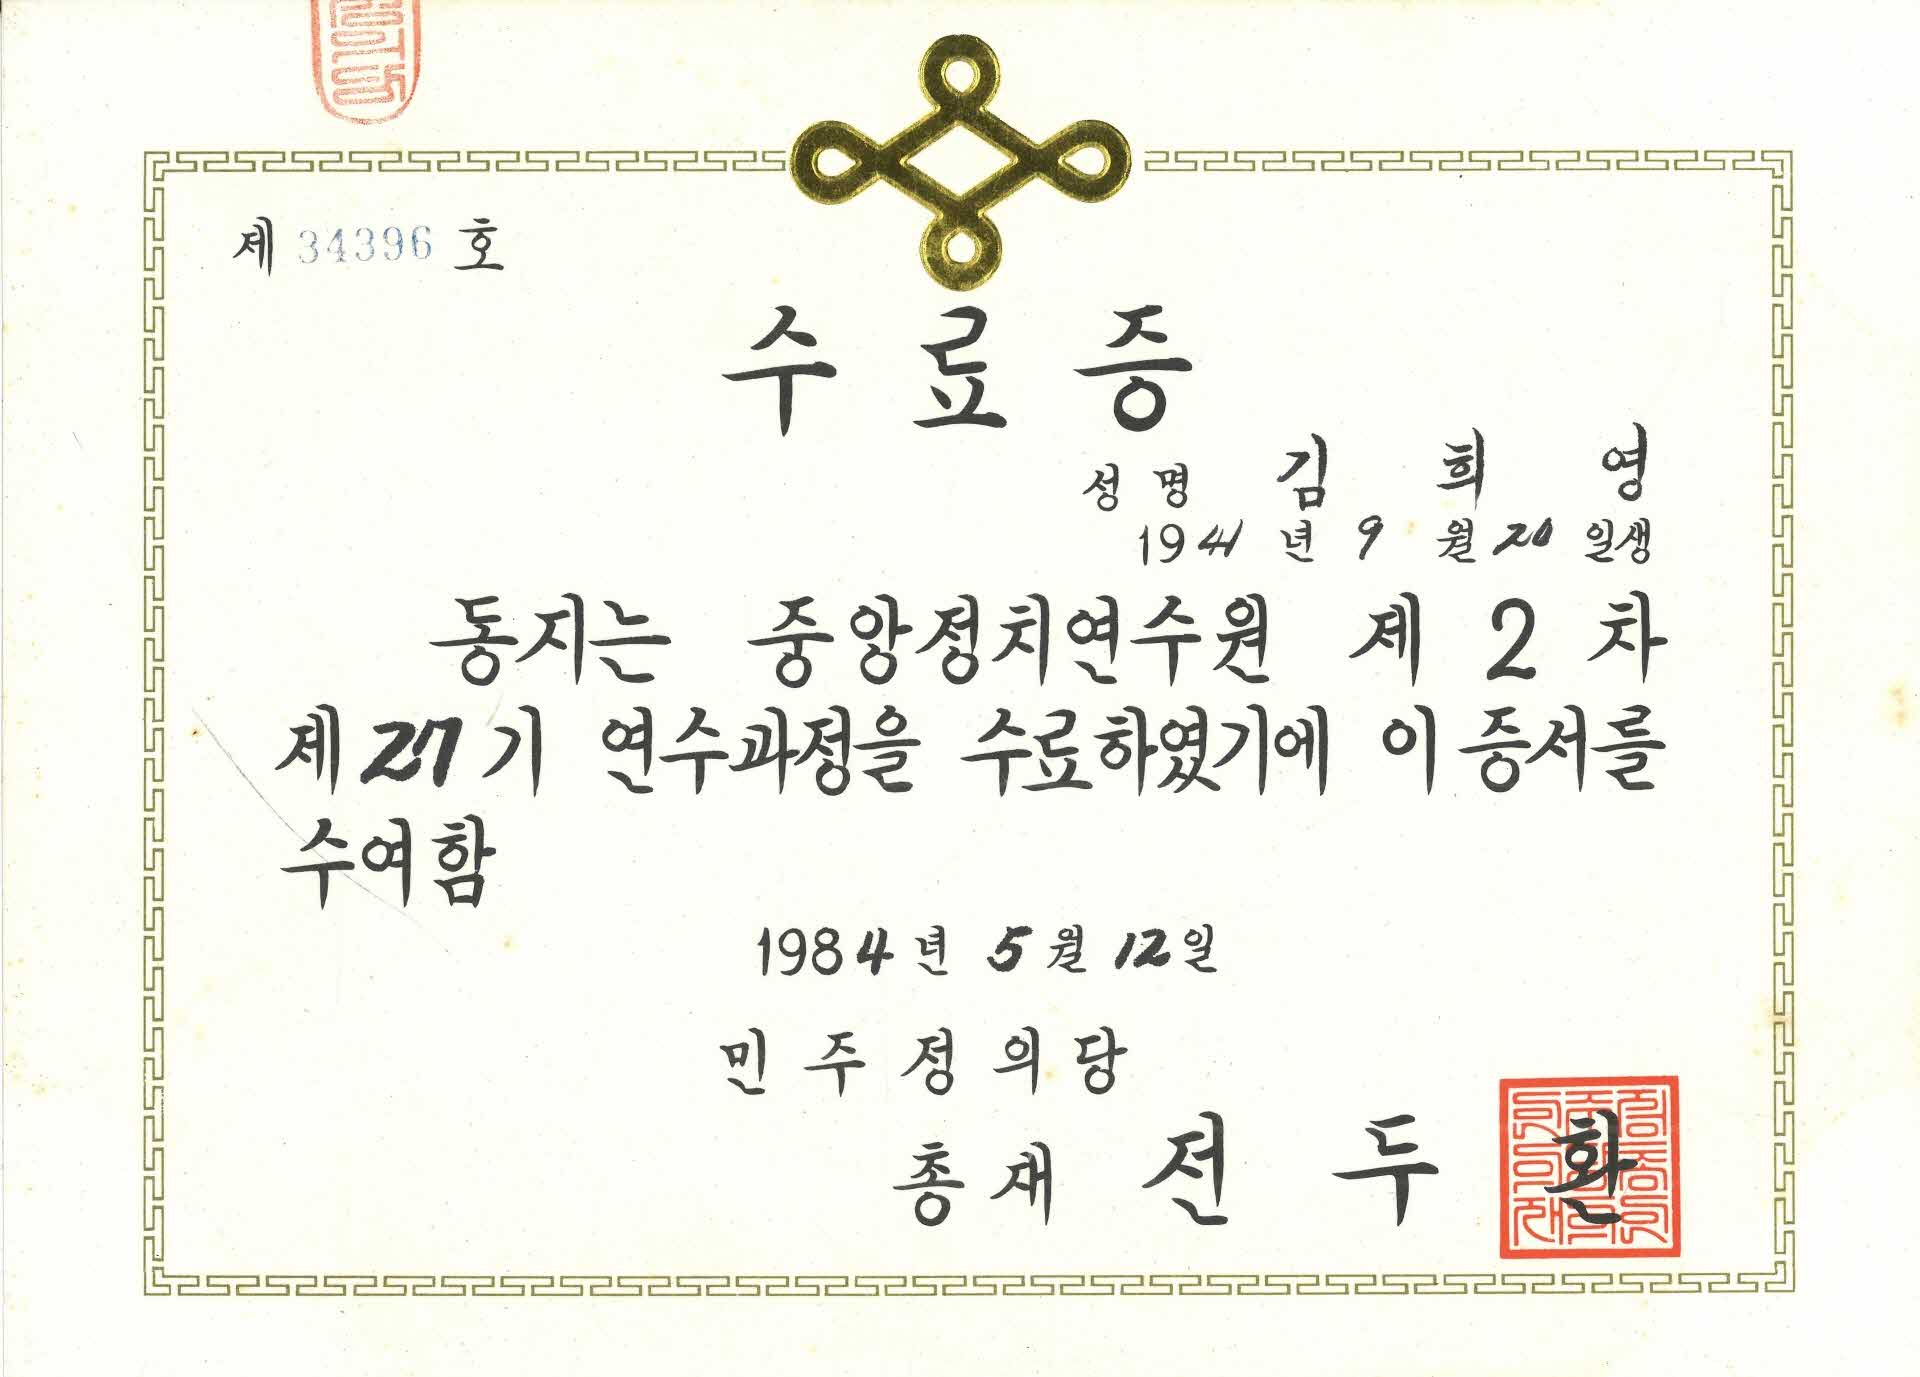 제 34396 호
수료증
성명 김희영
1941년 9월 20일생
동지는 중앙정치연수원 제 2 차
제 27 기 연수과정을 수료하였기에 이 증서를
수여함
1984년 5월 12일
민주정의당
총재 전두환